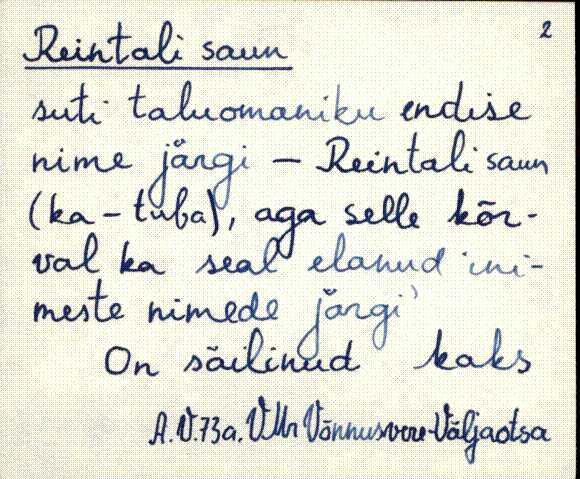 2
Reintali saun
suti taluomaniku endise
nime järgi – Reintali saun
(ka – tuba), aga selle kõr-
val ka seal elanud ini-
meste nimede järgi
On säilinud kaks
A.V.73a. VMr Võnnusvere-Väljaotsa